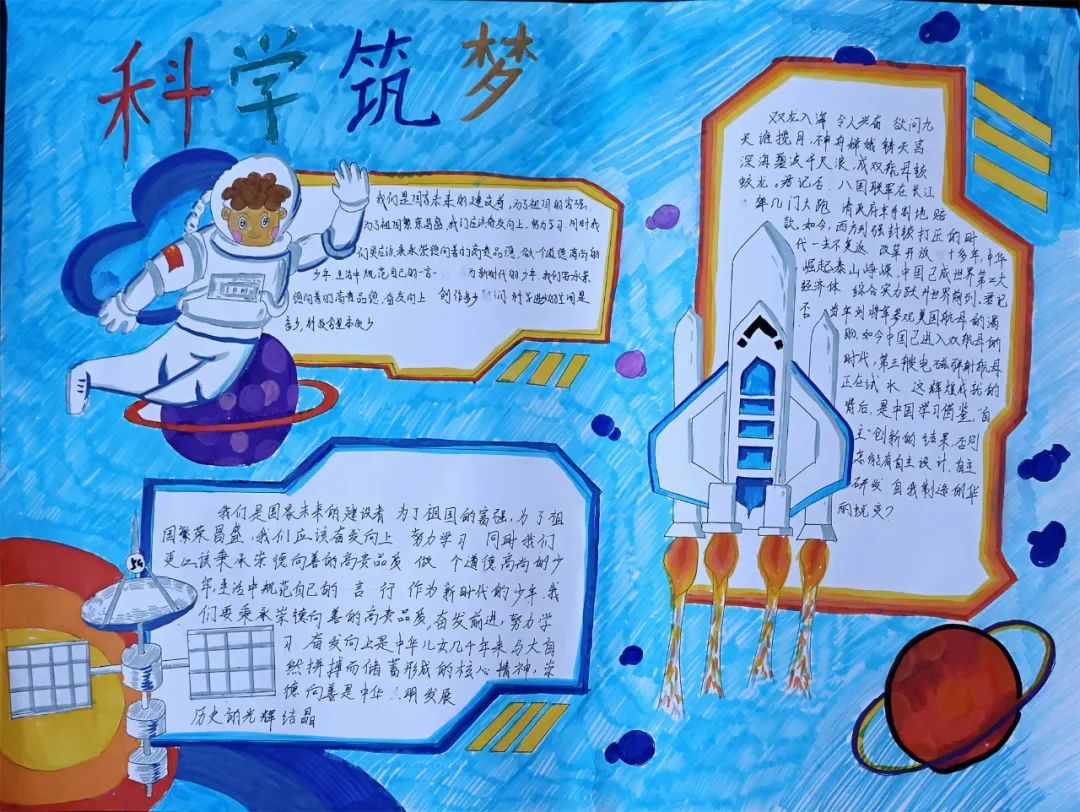 科学筑梦
我们是国家未来的建设者,为了祖国的富强,
为了祖国繁荣昌盛,我们应该奋发向上,努力学习,同时我
们更应该秉承崇德向善的高贵品德,做个道德高尚的
少年,生活中规范自己的言一 为新时代的少年,我们要秉承
德向善的高贵品德,奋发向上 创作多少
多少,科技含量有多少
双龙入海 令人兴奋 欲问九
天谁揽月,神舟嫦娥铸天宫
深海蒸波千尺浪,成双航母铰
蛟龙。君记否,八国联军在长江
年几门大炮 清政府牵手割地赔
款,如今,西方列强封锁打压的时
代一去不复返 改革开放 十多年,中华
崛起泰山峥嵘,中国已成世界第二大
经济体 综合实力跃升世界前列。君记
否 当年刘将军参观美国航母的渴
盼,如今中国已进入双航母的
时代,第三艘电磁弹射航母
正在试水 这辉煌成就的
背后,是中国学习借鉴,自
主创新的结果,否则
怎能有自主设计,自主
研发 自我制造的华
丽蜕变?
我们是国家未来的建设者 为了祖国的富强,为了祖
国繁荣昌盛,我们应该奋发向上 努力学习 同时我们
更应该秉承崇德向善的高贵品质 做 个道德高尚的少
年,生活中规范自己的 言 行 作为新时代的少年,我
们要秉承崇德向善的高贵品质,奋发前进,努力学
习 奋发向上是中华儿女几千年来与大自
然拼搏而储蓄形成的核心精神,崇
德向善是中华 明发展
历史的光辉结晶